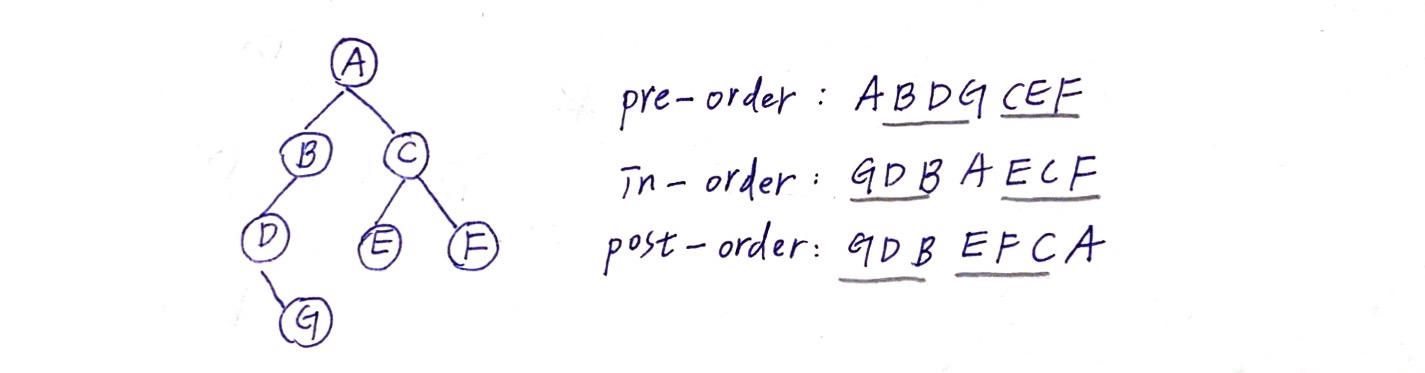 A
B C
D E F
G
pre-order : ABDG CEF
in-order : GDB A ECF
post-order: GDB EFC A